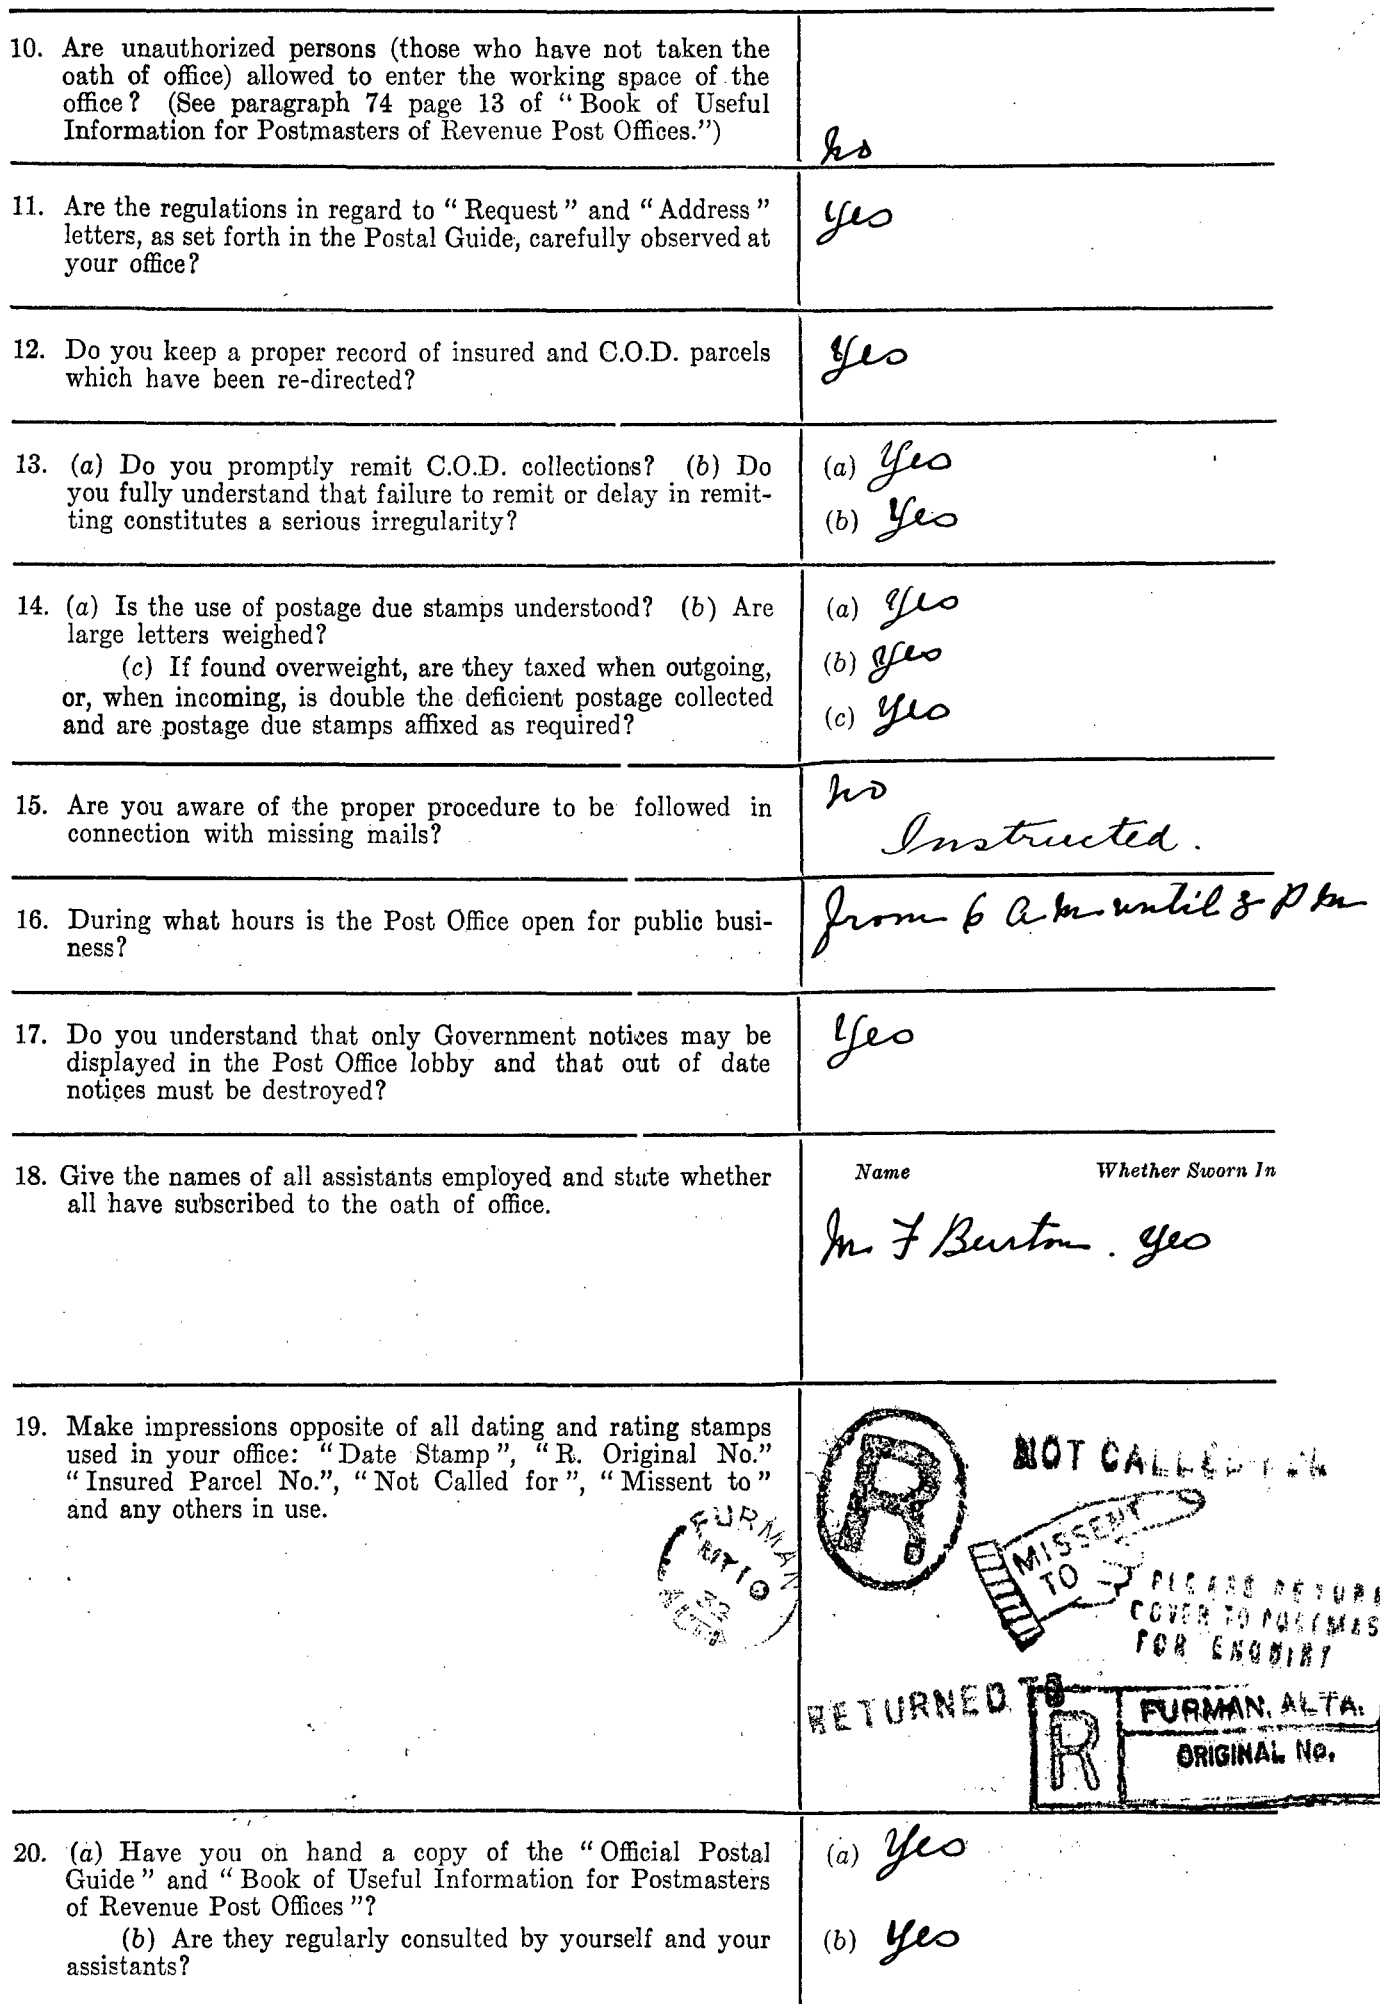 10. Are unauthorized persons (those who have not taken the
oath of office) allowed to enter the working space of the
office? (See paragraph 74 page 13 of “Book of Useful
Information for Postmasters of Revenue Post Offices.”)
no
11. Are the regulations in regard to “Request” and “Address”
letters, as set forth in the Postal Guide, carefully observed at
your office?
Yes
12. Do you keep a proper record of insured and C.O.D. parcels
which have been re-directed?
Yes
13. (a) Do you promptly remit C.O.D. collections? (b) Do
you fully understand that failure to remit or delay in remit-
ting constitutes a serious irregularity?
(a) Yes
(b) Yes
14. (a) Is the use of postage due stamps understood? (b) Are
large letters weighed?
(c) If found overweight, are they taxed when outgoing,
or, when incoming, is double the deficient postage collected
and are postage due stamps affixed as required?
(a) Yes
(b) Yes
(c) Yes
15. Are you aware of the proper procedure to be followed in
connection with missing mails?
no
Instructed.
16. During what hours is the Post Office open for public busi-
ness?
from 6 a.m. until 8 P m
17. Do you understand that only Government notices may be
displayed in the Post Office lobby and that out of date
notices must be destroyed?
Yes
18. Give the names of all assistants employed and state whether
all have subscribed to the oath of office.
Name Whether Sworn In
M. F Burton. Yes
19. Make impressions opposite of all dating and rating stamps
used in your office: “Date Stamp”, “R. Original No.”
“Insured Parcel No.”, “Not Called for”, “Missent to”
and any others in use.
FURMAN
10
32
ALTA
R.
NOT CALLED FOR
MISSENT
TO
PLEASE RETURN
COVER TO POSTMAS
FOR ENQUIRY
RETURNED TO
R
FURMAN, ALTA.
ORIGINAL No.
20. (a) Have you on hand a copy of the “Official Postal
Guide” and “Book of Useful Information for Postmasters
of Revenue Post Offices”?
(b) Are they regularly consulted by yourself and your
assistants?
(a) Yes
(b) Yes